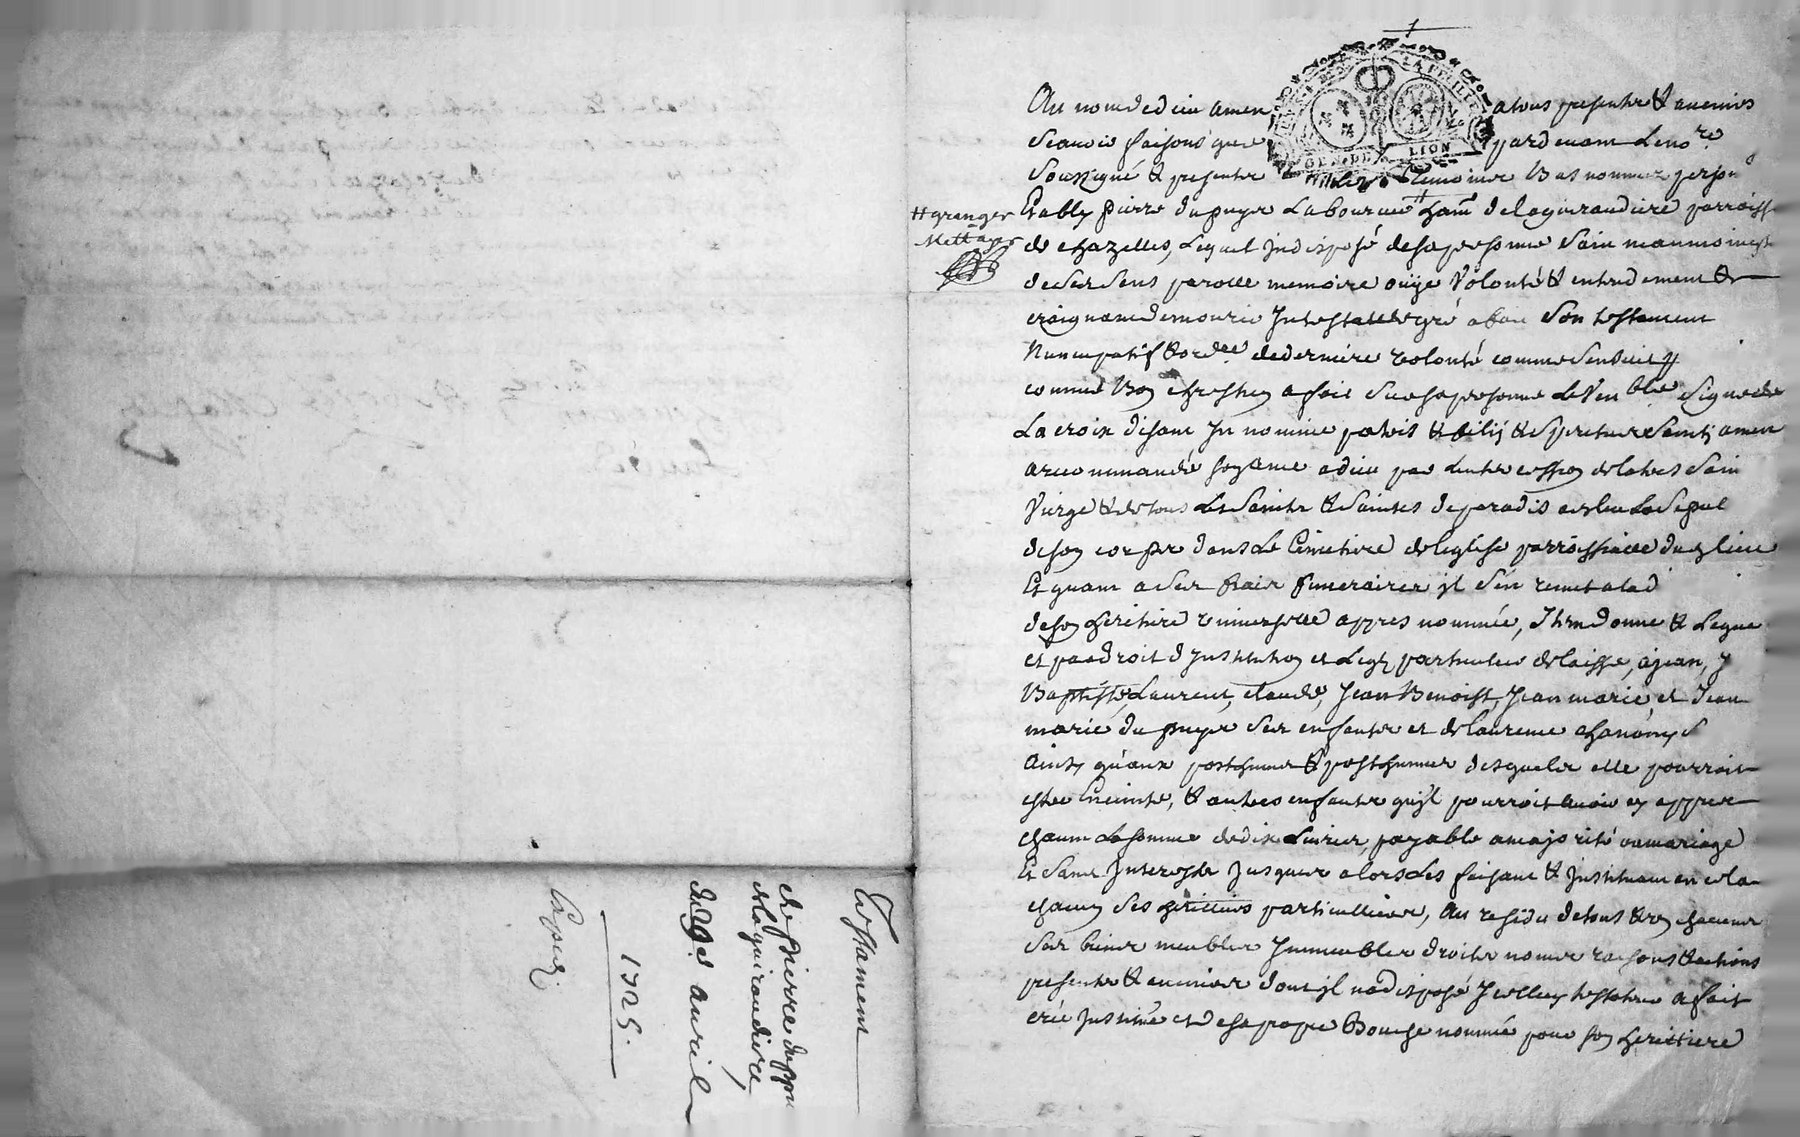 Au nom de dieu amen a tous presents & auenirs
scauoir faisons que pardeuant le no.re
soussigné & presents les temoins bas nommez person
Estably pierre dupuys Laboureur # hant de la guiraudiere parroisse
# granger
Mettayer
de chazelles, Lequel Indisposé de sa personne sain neanmoins
de ses sens parolle memoire ouÿe Volonté & entendement &
craignant de mourir Intestat de gré a fait son testament
Nuncupatif & ord.ce de derniere volonté comme sensuit
comme bon chrestien a fait sur sa personne le Ven.ble signe de
La croix disant In nomine patris & filij & spiritus sancti amen
a recommandé son ame a dieu par l'intercession de la tres sain
Vierge & de tous les saints & saintes de paradis esleu la sepul
de son corps dans le Cimetiere de leglise parroissialle dud lieu
Et quant a ses frais funeraires il s'en remet a la d
de son heritiere vniverselle appres nommée, Item donne & legue
et par droit d'Institution et legs particulier delaisse, a jean,
Baptiste, Laurent, claude, Jean Benoist, Jean marie, et Jean
marie dupuys ses enfants et de laurence chanauy
Ainsy qu'aux posthumes & posthumes desquels elle pourroit
estre Enceinte, & autres enfants qu'il pourroit auoir cy appres
chacun la somme de dix Liures, payable a majorité ou mariage
Et sans Interests Jusques alors les faisant & Instituant en cela
chacun ses heritiers particulliers, Au residu de tous & vn chacuns
ses biens meubles Immeubles droits noms raisons & actions
presents & auenirs dont il n'a disposé Icelluy testateur a fait
créé Institué et de sa propre Bouche nommée pour son heritiere
Testament
de pierre dupuy
de la guiraudiere
du 9.e auril
1725.
Expedié